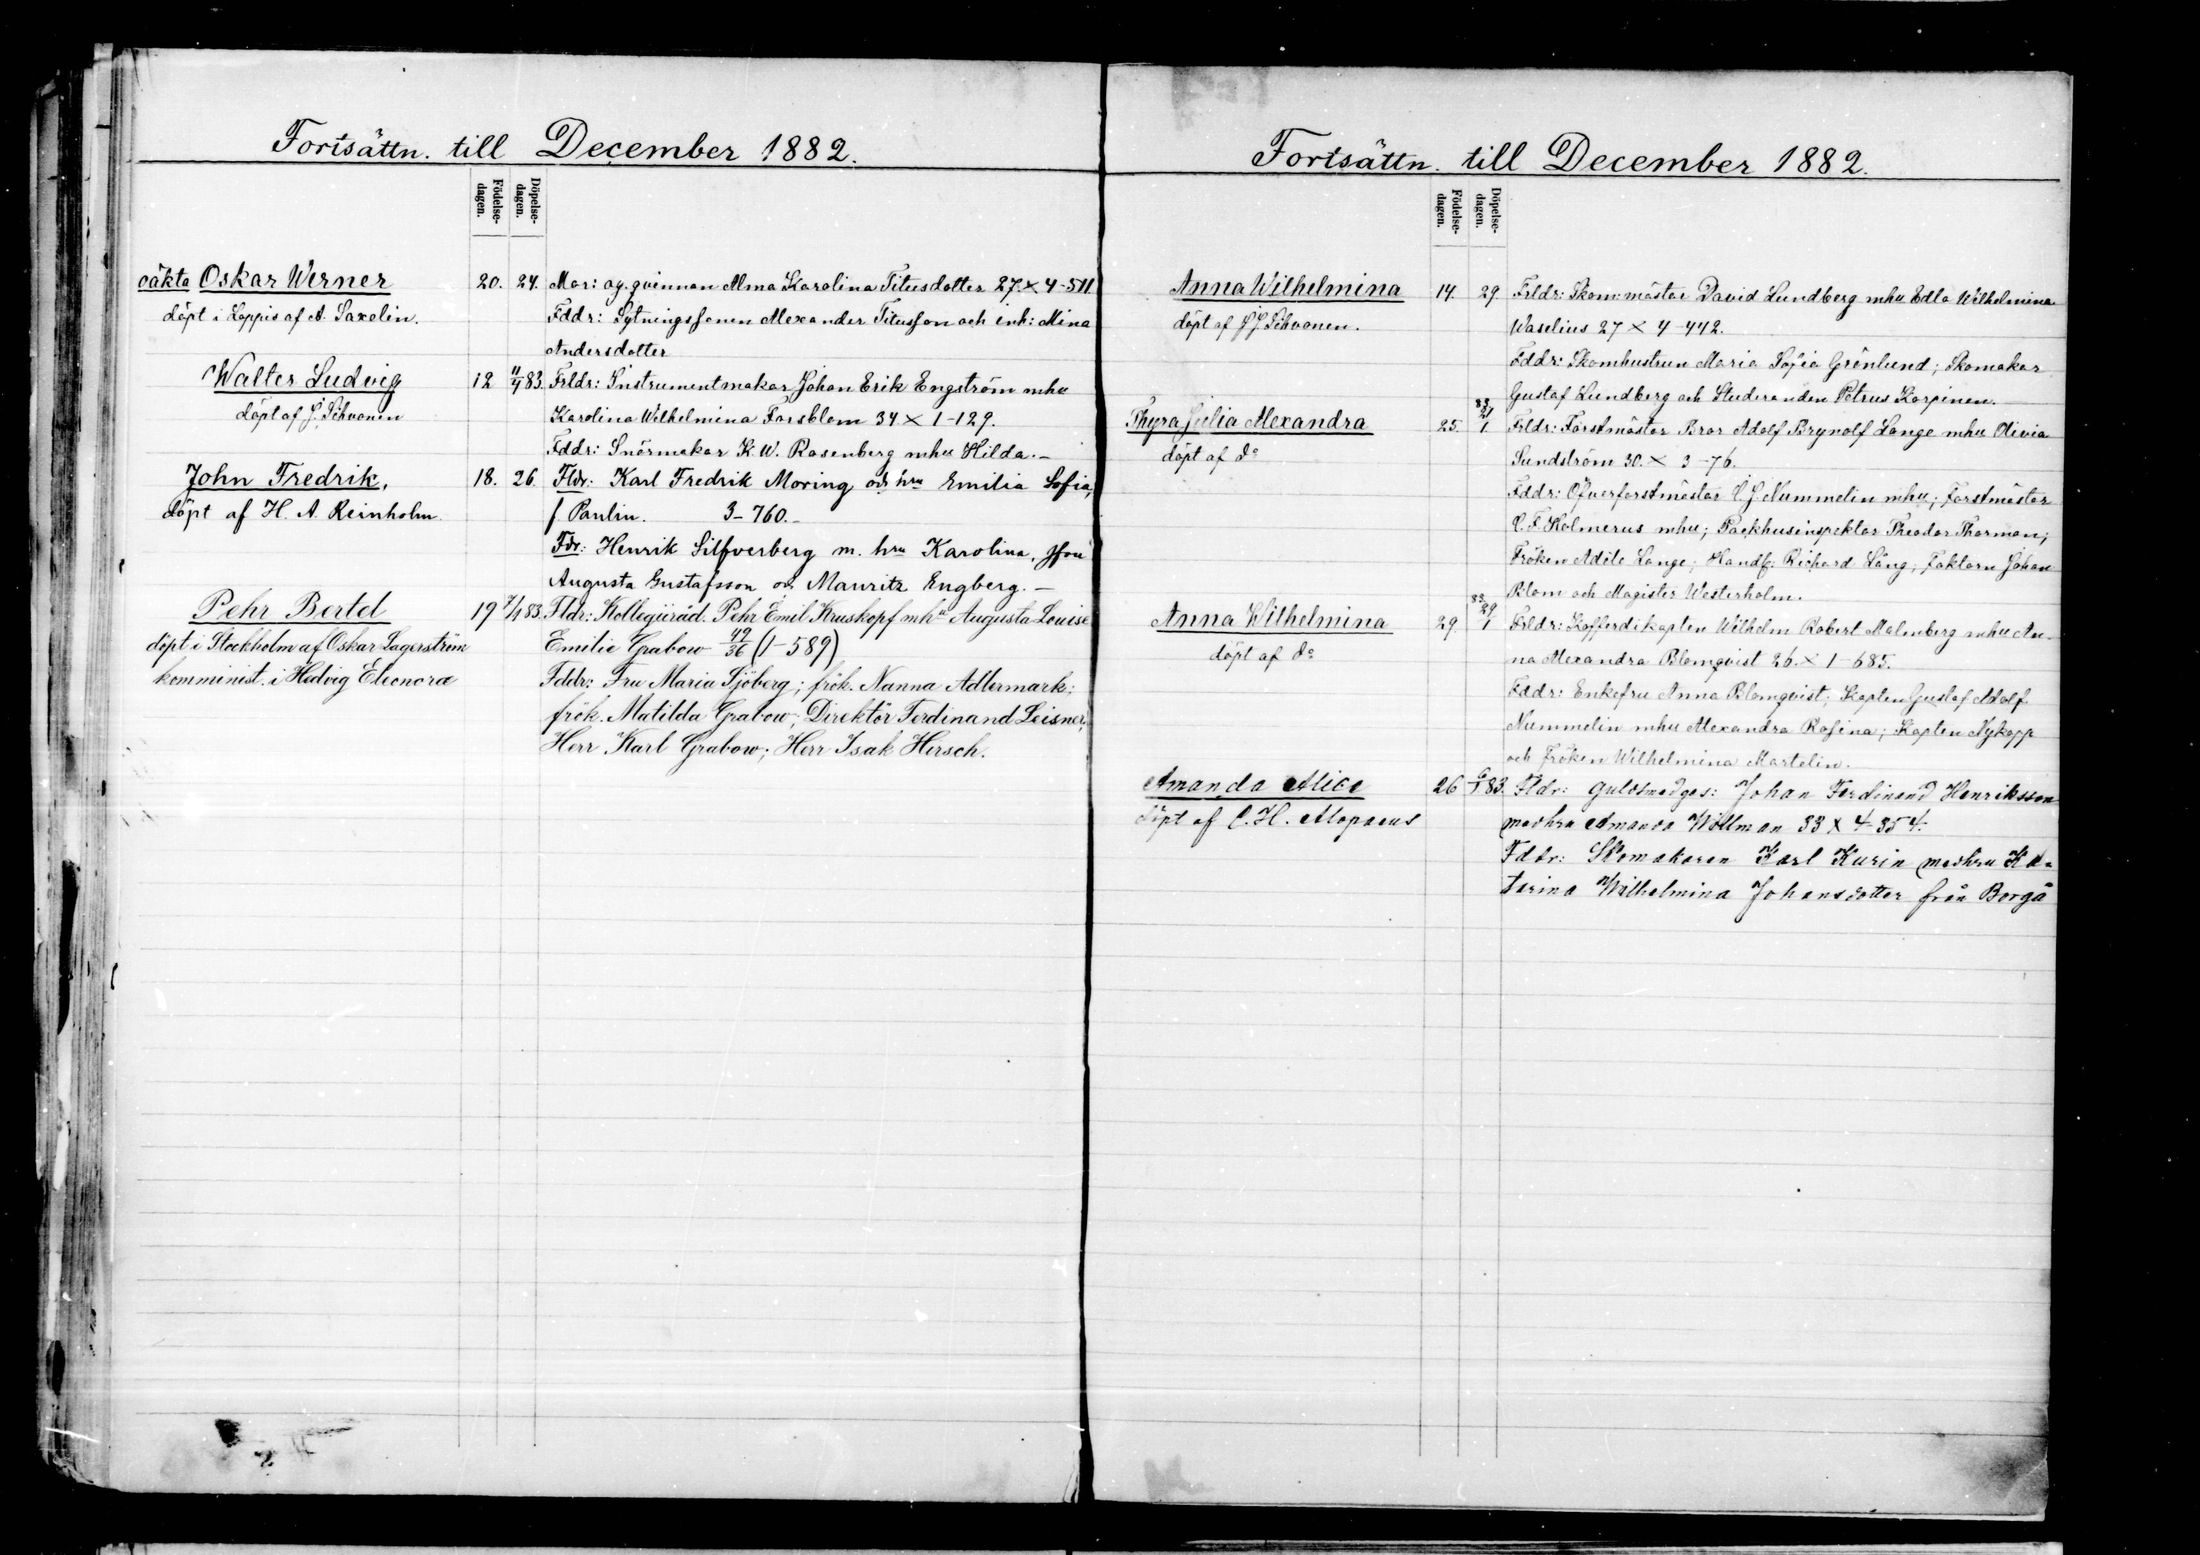 Fortsättn. till December 1882.
Födelse-
dagen.
Döpelse-
dagen.
oäkta Oskar Werner 20. 24. Mor: og. qvinnan Alma Karolina Titusdotter 27. × 4-511
döpt i Loppis af A. Saxelin. Fddr: Sytningssonen Alexander Titusson och inh: Mina
Andersdotter
Walter Ludvig 12 11/4 83. Frldr: Instrumentmakar Johan Erik Engström mhu
döpt af J. Sihvonen Karolina Wilhelmina Forsblom 34 × 1-129.
Fddr: Snörmakar K. W. Rosenberg mhu Hilda.-
John Fredrik, 18. 26. Fldr: Karl Fredrik Moring och hru Emilia Sofia,
döpt af H. A. Reinholm. f. Paulin. 3-760.-
Fdr: Henrik Silfverberg m. hru Karolina, Jfru
Augusta Gustafsson o. Mauritz Engberg.-
Pehr Bertel 19 7/1 83. Fldr: Kollegiiråd. Pehr Emil Kruskopf mhu Augusta Louise
döpt i Stockholm af Oskar Lagerström Emilie Grabow 42/36 (1-589)
komminist. i Hedvig Eleonora Fddr: Fru Maria Sjöberg; frök. Nanna Adlermark;
frök. Matilda Grabow; Direktör Ferdinand Leisner;
Herr Karl Grabow; Herr Isak Hirsch.
Fortsättn. till December 1882.
Födelse-
dagen.
Döpelse-
dagen.
Anna Wilhelmina 14. 29. Frldr: Skom:mästar David Lundberg mhu Edla Wilhelmina
döpt af J J Sihvonen. Waselius 27 × 4-442.
Fddr: Skomhustrun Maria Sofia Grönlund; Skomakar
Gustaf Lundberg och Studeranden Petrus Karpinen.
Thyra Julia Alexandra 25. 83 21/1. Frldr: Forstmästar Bror Adolf Brynolf Lange mhu Olivia
döpt af do Sundström 30. × 3-76.
Fddr: Öfverforstmästar C. J. Nummelin mhu; Forstmästar
C. F. Holmerus mhu; Packhusinspektor Theodor Thorman;
Fröken Adèle Lange; Handl: Richard Lång; Faktorn Johan
Blom och Magister Westerholm.
Anna Wilhelmina 29. 83. 29/1 Frldr: Kofferdikapten Wilhelm Robert Malmberg mhu An-
döpt af do na Alexandra Blomqvist 26. × 1-685.
Fddr: Enkefru Anna Blomqvist; Kapten Gustaf Adolf
Nummelin mhu Alexandra Rosina; Kapten Nykopp
och Fröken Wilhelmina Martelin.
Amanda Alice 26 6/1 83. Fldr: Guldsmedges: Johan Ferdinand Henriksson
döpt af C. H. Alopaeus medhru Amanda Wöllman 33 × 4-354.
Fddr: Skomakaren Karl Kurin medhru Ka-
tarina Wilhelmina Johansdotter från Borgå